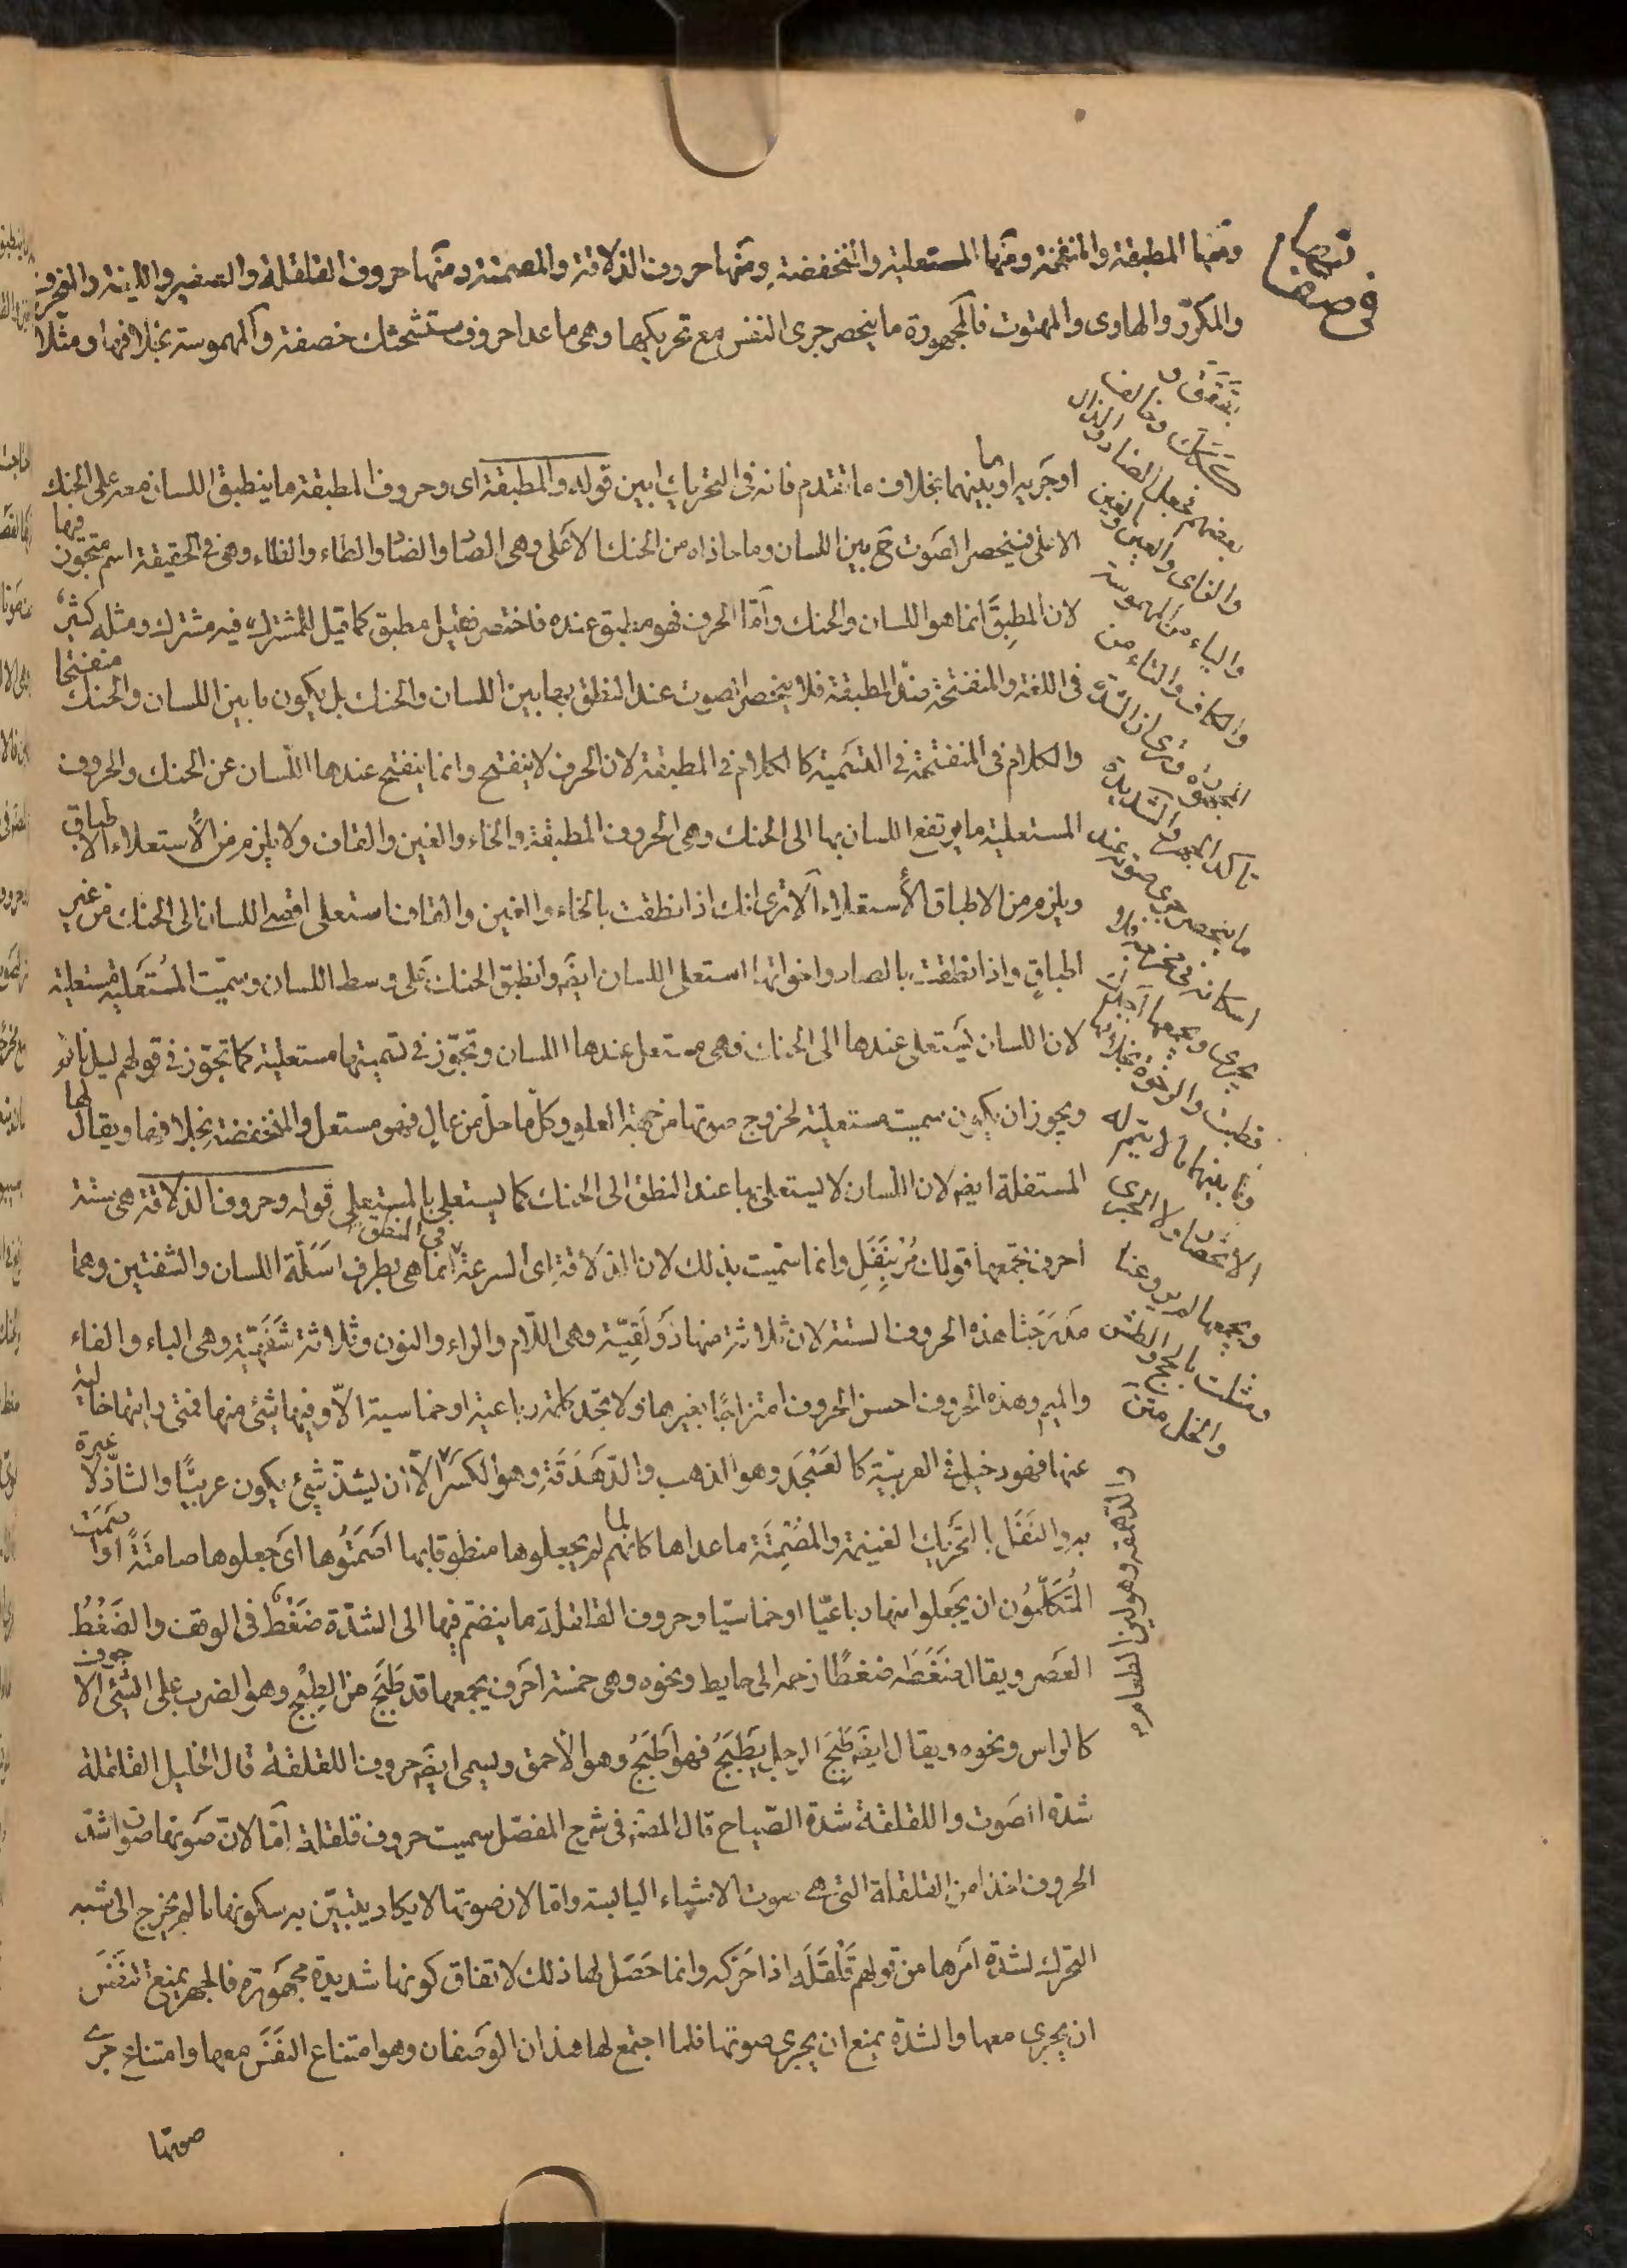 ومنها المطبقة والمنفتحة ومنها المستعلية والمنخفضة ومنها حروف الذلاقة والمصمتة ومنها حروف القلقلة والصفير واللينة والمنحرف
والمكرر والهاوى والمهتوت فالمجهورة ما ينحصر جرى النفس مع تحريكها وهى ما عدا حروف ستشحثك خصفة والمهموسة بخلافها ومثلا
بققق و
ككك وخالف
بعضهم فجعل الضاد والذال
والزاى والعين والغين
والياء من المهموسة
والكاف والتاء من
المجهورة ورأى ان الشدة
تأكد الجهر والشديدة
ما ينحصر جرى صوته عند
اسكانه فى مخرجه فلا
يجرى ويجمعها اجدت
قطبت والرخوة بخلافها
وما بينهما ما لا يتم له
الانحصار ولا الجرى
ويجمعها لم يروعنا
ومثلت بالحج والطش
والخل متن
او جَريه او ما بينهما بخلاف ما تقدم فانه فى التحريك ابين قوله والمطبقة اى وحروف المطبقة ما ينطبق اللسان معه على الحنك
الاعلى فينحصر الصوت ح بين اللسان وما حاذاه من الحنك الاعلى وهى الصاد والضاد والطاء والظاء وهى فى الحقيقة اسم متجوز فيها
لان المطبق انما هو اللسان والحنك وامّا الحرف فهو مطبق عنده فاختصر فقيل مطبق كما قيل للمشترك فيه مشترك ومثله كثير
فى اللغة والمنفتحة ضدّ المطبقة فلا ينحصر الصوت عند النطق بها بين اللسان والحنك بل يكون ما بين اللسان والحنك منفتحا
والكلام فى المنفتحة فى التسمية كالكلام فى المطبقة لان الحرف لا ينفتح وانما ينفتح عندها اللسان عن الحنك والحروف
المستعلية ما يرتفع اللسان بها الى الحنك وهى الحروف المطبقة والخاء والغين والقاف ولا يلزم من الاستعلاء الاطباق
ويلزم من الاطباق الاستعلاء الا ترى انك اذا نطقت بالخاء والغين والقاف استعلى اقصى اللسان الى الحنك من غير
اطباقٍ واذا نطقت بالصاد واخواتها استعلى اللسان ايضَ وانطبق الحنك على وسط اللسان وسميّت المُستَعلية مستعلية
لان اللسان يَستعلى عندها الى الحنك فهى مستعل عندها اللسان وتجوّز فى تسميتها مستعلية كما تجوّز فى قولهم ليل نائم
ويجوز ان يكون سميت مستعلية لخروج صوتها من جهة العلو وكلّ ما حلّ من عالٍ فهو مستعل والمنخفضة بخلافها ويقال لها
المستفلة ايضَ لان اللسان لا يستعلى بها عند النطق الى الحنك كما يستعلى بالمستعلى قوله وحروف الذلاقة هى ستة
أحرف تجمعها قولك مُرْ بِنَفَلٍ وانما سمّيت بذلك لان الذلاقة اى السرعة فى النطق انما هى بطرف اسَلَة اللسان والشفتين وهما
مَدرَجتا هذه الحروف الستة لان ثلاثة منها ذَولَقيّة وهى اللّام والراء والنون وثلاثة شَفَهيّة وهى الباء والفاء
والميم وهذه الحروف احسن الحروف امتزاجًا بغيرها ولا تجد كلمة رباعية او خماسية الّا وفيها شئ منها فمتى رايتها خالية
عنها فهو دخيل فى العربية كالعَسْجَد وهو الذهب والدّهدَقة وهو الكسَر الّا ان يشذّ شئ يكون عربيًّا والشاذّ لا عبرة
به والنفَل بالتحريك الغنيمة والمصْمِتَة ما عداها كانهم لما لم يجعلوها منطوقا بها اصَمَتُوها اى جعلوها صامتةً او اصمت
المُتكلّمُون ان يجعلوا منها رباعيّا او خماسيا وحروف القلقلة ما ينضم فيها الى الشدّة ضَغْطٌ فى الوقف والضَغْطُ
العَصر ويقال ضغَطه ضغطًا زحمه الى حايط ونحوه وهى خمسة احرف يجمعها قد طبَج من الطبج وهو الضرب على الشئ الاجوف
كالراس ونحوه ويقال ايضَ طَبِجَ الرجل يَطْبَجُ فهو اَطْبَجُ وهو الاحمق ويسمى ايضَ حروف اللقلقة قال الخليل القلقلة
شدة الصَوت واللقلقة شدة الصّياح قال المصنف فى شرح المفصّل سميت حروف قلقلة امّا لانّ صَوتها صوت اشدّ
الحروف اخذا من القلقلة التى هى صوت الاشياء اليابسة وامّا لان صوتها لا يكاد يتبيّن به سكونها ما لم يخرج الى شبه
التحرك لشدّة امرها من قولهم قَلْقَلَه اذا حَرّكه وانما حَصَل لها ذلك لاتفاق كونها شديدة مجهورة فالجهر يمنع النفَسَ
ان يجرى معها والشدّة يمنع ان يجرى صوتها فلما اجتمع لها هذان الوَصفان وهو امتناع النفَسَ معها وامتناع جرى
والدهمقة وهو لين الطعام
صوتها